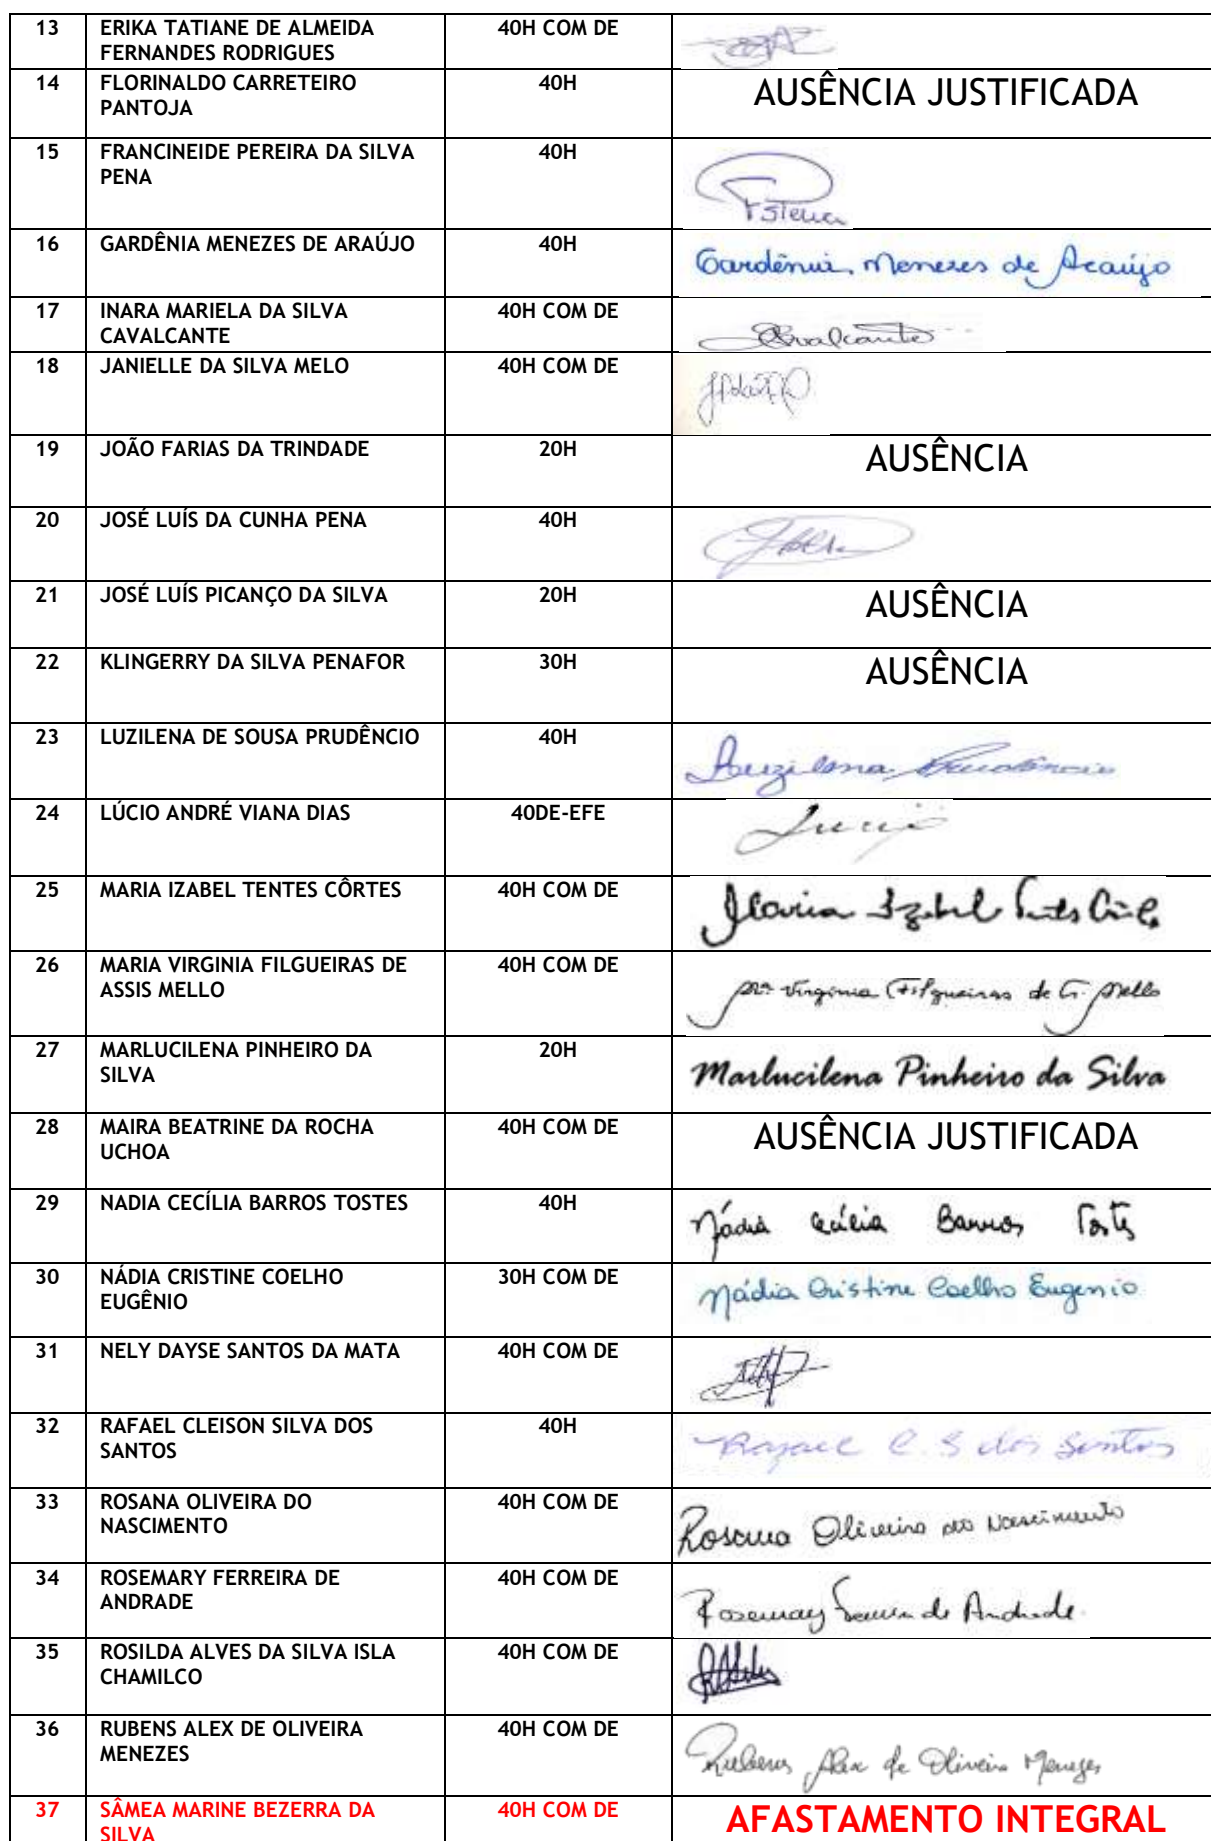 13 ERIKA TATIANE DE ALMEIDA 40H COM DE
FERNANDES RODRIGUES
14 FLORINALDO CARRETEIRO 40H AUSÊNCIA JUSTIFICADA
PANTOJA
15 FRANCINEIDE PEREIRA DA SILVA 40H
PENA
16 GARDÊNIA MENEZES DE ARAÚJO 40H Gardênia Menezes de Araújo
17 INARA MARIELA DA SILVA 40H COM DE
CAVALCANTE Cavalcante
18 JANIELLE DA SILVA MELO 40H COM DE
19 JOÃO FARIAS DA TRINDADE 20H AUSÊNCIA
20 JOSÉ LUÍS DA CUNHA PENA 40H
21 JOSÉ LUÍS PICANÇO DA SILVA 20H AUSÊNCIA
22 KLINGERRY DA SILVA PENAFOR 30H AUSÊNCIA
23 LUZILENA DE SOUSA PRUDÊNCIO 40H Luzilena Prudêncio
24 LÚCIO ANDRÉ VIANA DIAS 40DE-EFE Lucio
25 MARIA IZABEL TENTES CÔRTES 40H COM DE Maria Izabel Tentes Côrtes
26 MARIA VIRGINIA FILGUEIRAS DE 40H COM DE
ASSIS MELLO Mª Virginia Filgueiras de A. Mello
27 MARLUCILENA PINHEIRO DA 20H Marlucilena Pinheiro da Silva
SILVA
28 MAIRA BEATRINE DA ROCHA 40H COM DE AUSÊNCIA JUSTIFICADA
UCHOA
29 NADIA CECÍLIA BARROS TOSTES 40H Nádia Cecília Barros Tostes
30 NÁDIA CRISTINE COELHO 30H COM DE Nádia Cristine Coelho Eugenio
EUGÊNIO
31 NELY DAYSE SANTOS DA MATA 40H COM DE
32 RAFAEL CLEISON SILVA DOS 40H Rafael C. S dos Santos
SANTOS
33 ROSANA OLIVEIRA DO 40H COM DE Rosana Oliveira do Nascimento
NASCIMENTO
34 ROSEMARY FERREIRA DE 40H COM DE
ANDRADE Rosemary Ferreira de Andrade
35 ROSILDA ALVES DA SILVA ISLA 40H COM DE
CHAMILCO
36 RUBENS ALEX DE OLIVEIRA 40H COM DE
MENEZES Rubens Alex de Oliveira Menezes
37 SÂMEA MARINE BEZERRA DA 40H COM DE AFASTAMENTO INTEGRAL
SILVA